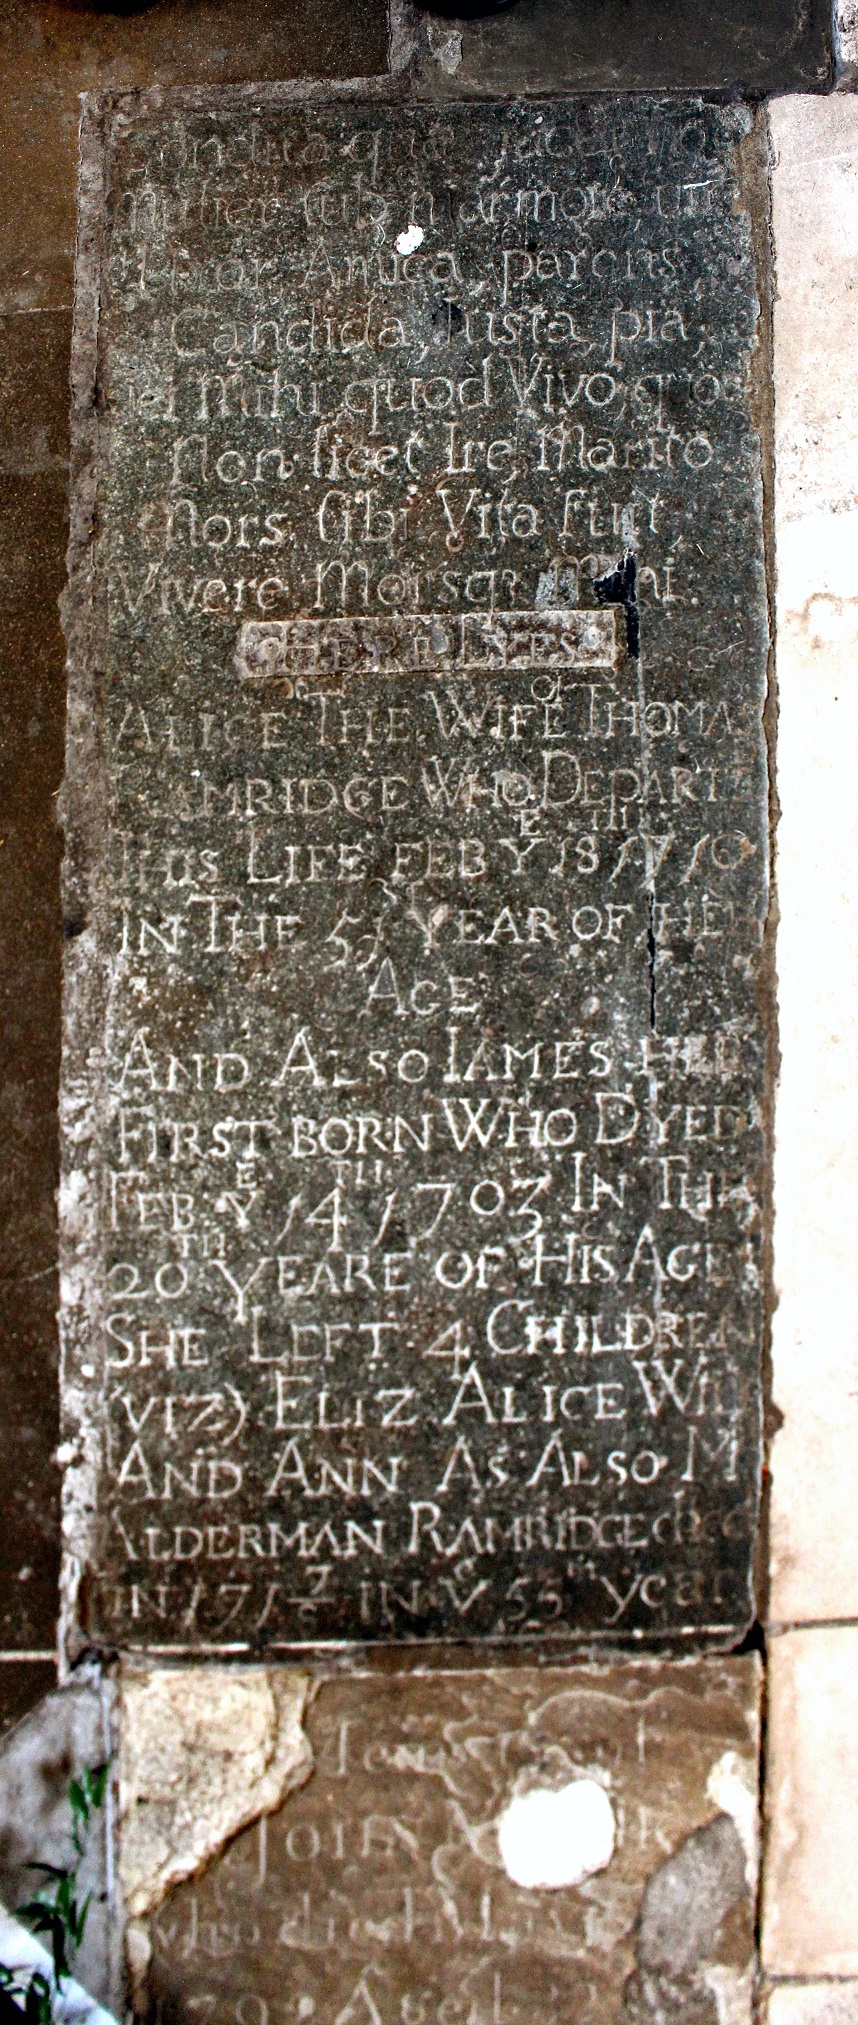 Condita quæ jacet hoc
Mulier sub marmore, un
Uxor Amica, parens,
Candida, Iusta, pia,
Mihi quod Vivo, quo
non licet Ire, Marito
Mors sibi Vita fuit,
Vivere Morsq; Mihi.
HERE LYES
ALICE THE WIFE OF THOMAS
RAMRIDGE WHO DEPART
THIS LIFE FEB Y^E 18^TH 1710
IN THE 55 YEAR OF HER
AGE
AND ALSO IAMES HER
FIRST BORN WHO DYED
FEB: Y^E 14^TH 1703 IN THE
20^TH YEARE OF HIS AGE
SHE LEFT 4 CHILDREN
(VIZ) ELIZ ALICE WILL
AND ANN AS ALSO M
ALDERMAN RAMRIDGE died
IN 171 7/6 IN Y^e 55^th year
IOHN
who died